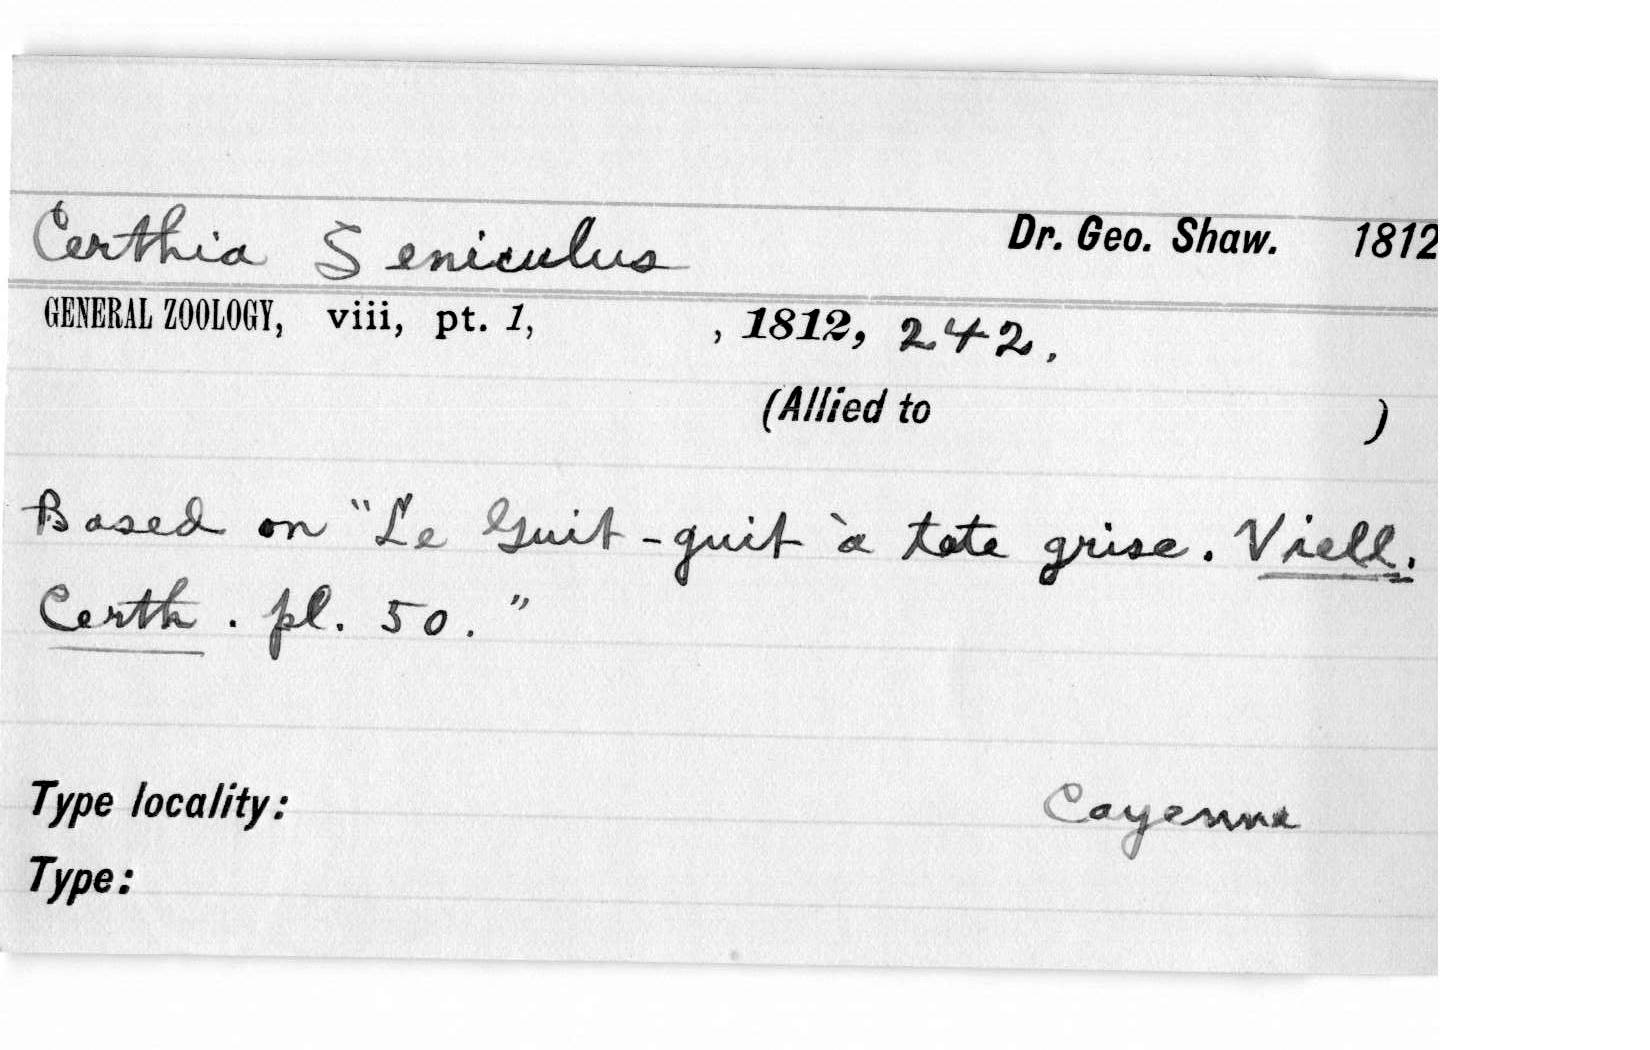 Certhia Seniculus Dr. Geo. Shaw. 1812
GENERAL ZOOLOGY, viii, pt. 1, , 1812, 242.
(Allied to )
Based on "Le Guit-guit à tete grise. Viell.
Certh. pl. 50."
Type locality: Cayenne
Type: